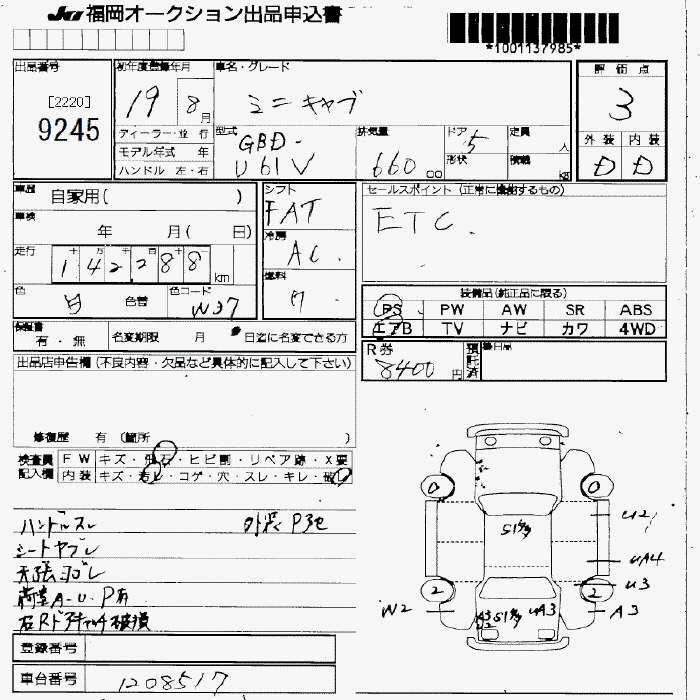 JU 福岡オークション出品申込書
*1001137985*
出品番号
[2220]
9245
初年度登録年月
19 8月
ディーラー・並行
モデル年式 年
ハンドル 左・右
車名・グレード
ミニキャブ
型式
GBD-
U61V
排気量
660 cc
ドア 5
形状
定員 人
積載 kg
評価点
3
外装 内装
D D
車歴 自家用( )
車検 年 月( 日)
走行
十 万 千 百 十 一
142288 km
色 白 色替
色コード W37
シフト
FAT
冷房
AC
燃料
ガ
セールスポイント (正常に機能するもの)
ETC
装備品(純正品に限る)
PS PW AW SR ABS
エアB TV ナビ カワ 4WD
保証書 有・無
名変期限 月 日迄に名変できる方
R券
8400 円
預託済
後日品
出品店申告欄 (不良内容・欠品など具体的に記入して下さい)
修復歴 有 (箇所 )
検査員記入欄
FW キズ・飛石・ヒビ割・リペア跡・X要
内装 キズ・汚レ・コゲ・穴・スレ・キレ・破レ
ハンドルスレ 外装P多
シートヤブレ
天張ヨゴレ
荷室A-U・P有
右Rドアキャッチ破損
0 0
S1多
U2
UA4
U3
2 2
W2
A3
S2
S1多
UA3
A3
登録番号
車台番号 1208517